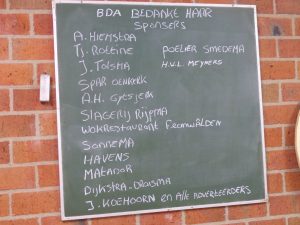 BDA BEDANKT HAAR
Sponsers
A. Hiemstra
Tj. Rolline
poelier Smedema
J. Tolsma
H.v.L. Meyners
SPAR OENKERK
A.H. Gytsjerk
Slagerij Rijpma
WOKRestaurant Frionwâlden
Sonnema
HAVENS
MATADOR
Dijkstra-Draisma
J. KOEHOORN en Alle adverteerders